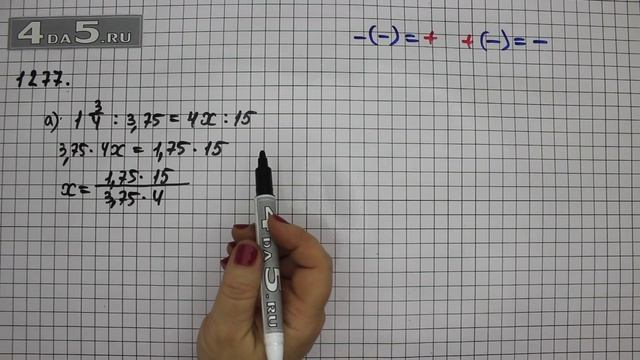 4DA5.RU
-(-)=+ +(-)=-
1277.
а) 1 3/4 : 3,75 = 4x : 15
3,75 · 4x = 1,75 · 15
x = 1,75 · 15 / 3,75 · 4
4DA5.RU